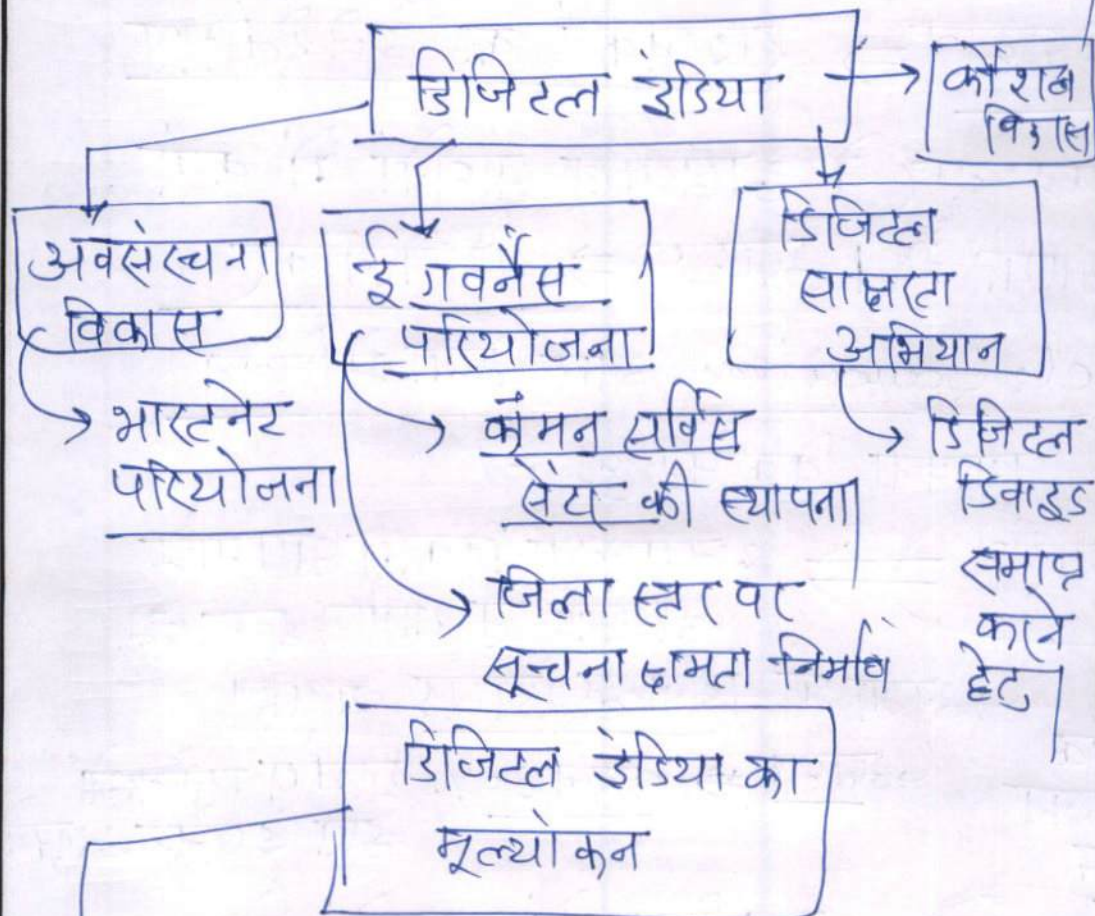 डिजिटल इंडिया
कौशल
विकास
अवसंरचना
विकास
भारतनेट
परियोजना
ई गवर्नेंस
परियोजना
कॉमन सर्विस
सेंटर की स्थापना
जिला स्तर पर
सूचना क्षमता निर्माण
डिजिटल
साक्षरता
अभियान
डिजिटल
डिवाइड
समाप्त
करने
हेतु
डिजिटल इंडिया का
मूल्यांकन